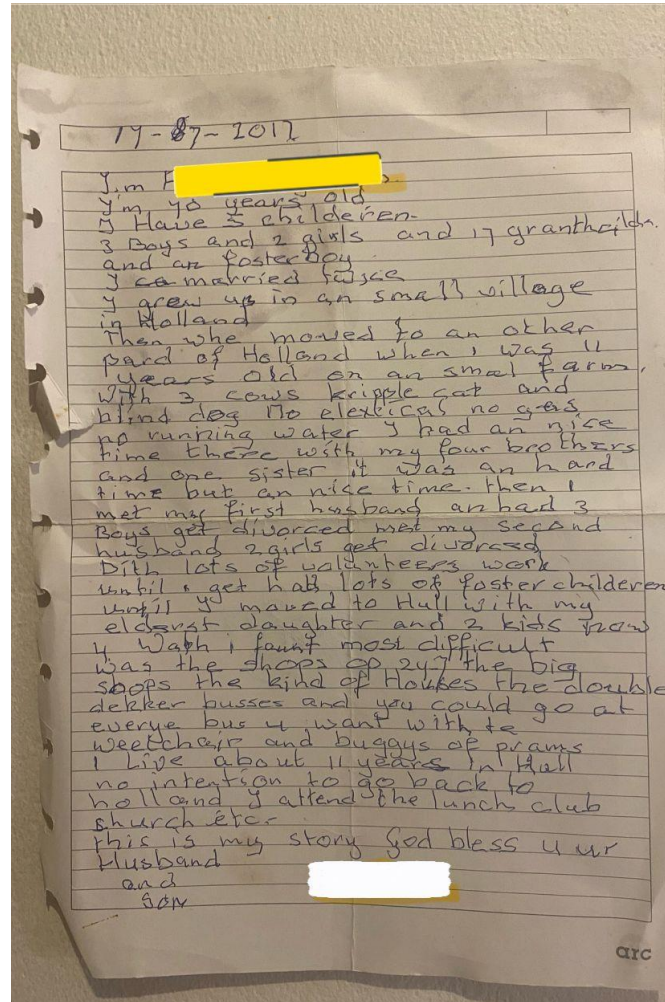 17-87-2017
I,m F
I'm 70 years old
I Have 5 childeren-
3 Boys and 2 girls and 17 grantheildn.
and an fosterboy
I ca married twice
I grew up in an small village
in Holland
Then whe moved to an other
pard of Holland when I was 11
years old on an smal farm.
with 3 cows kripple cat and
blind dog no elextical no gas
no running water I had an nice
time there with my four brothers
and one sister it was an hard
time but an nice time. then I
met my first husband an had 3
Boys get divorced met my second
husband 2 girls get divorced
Dith lots of volunteers work
until I get had lots of foster childeren
until y moved to Hull with my
elderst daughter and 2 kids now
4 Wath i faunt most difficult
was the shops op 247 the big
shops the kind of Houses the double
dekker busses and you could go at
everye bus u want with te
weetchair and buggys of prams
I Live about 11 years in Hull
no intention to go back to
holland I attend the lunch club
church etc-
this is my story God bless u ur
Husband
and
son
arc